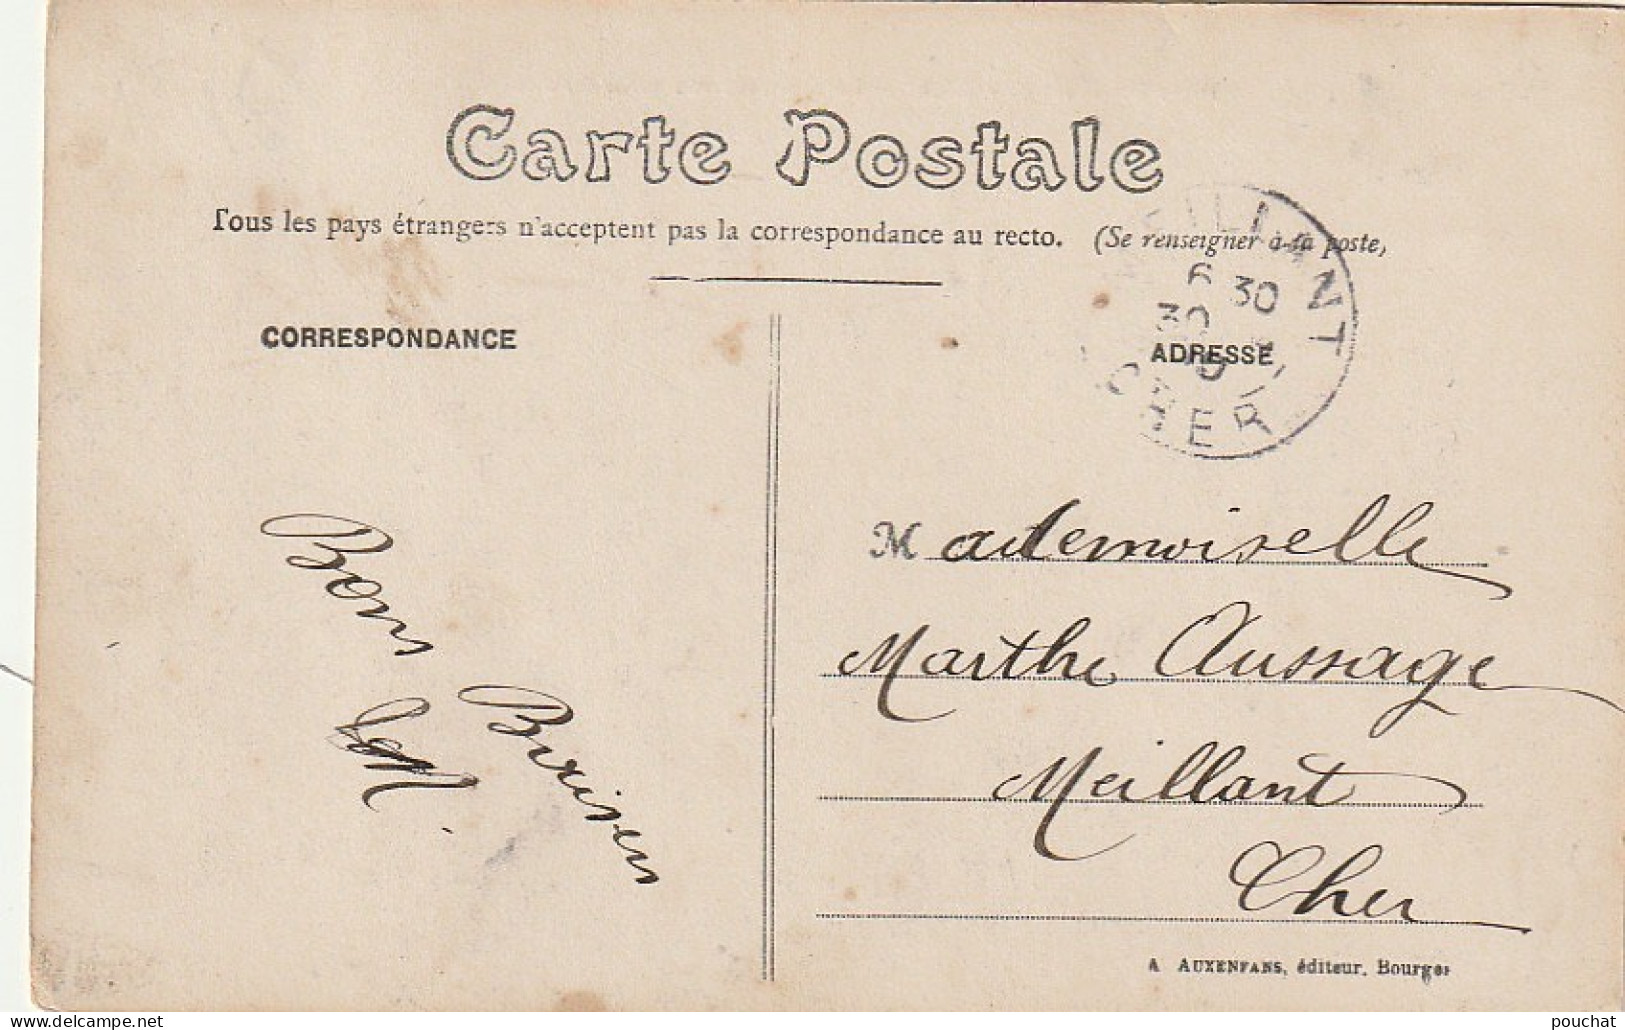 Carte Postale
Tous les pays étrangers n'acceptent pas la correspondance au recto. (Se renseigner à la poste,
CORRESPONDANCE
ADRESSE
ILLIANT
6 30
30
CHER
Mademoiselle
Marthe Aussage
Meillant
Cher
Bons Baisers
A AUXENFANS, éditeur, Bourges
pouchat